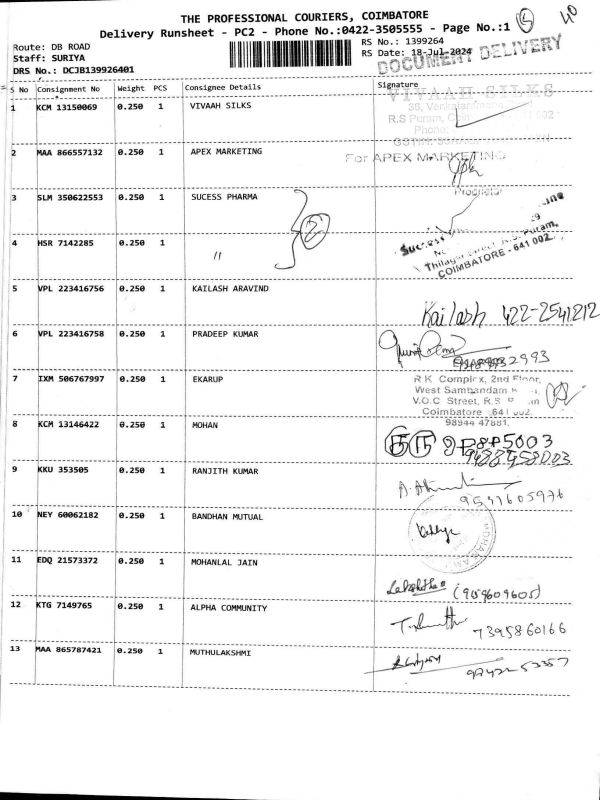 THE PROFESSIONAL COURIERS, COIMBATORE
Delivery Runsheet - PC2 - Phone No.:0422-3505555 - Page No.:1
Route: DB ROAD
RS No.: 1399264
Staff: SURIYA
RS Date: 18-Jul-2024
DOCUMENT DELIVERY
DRS No.: DCJB139926401
S No Consignment No Weight PCS Consignee Details Signature
1 KCM 13150069 0.250 1 VIVAAH SILKS
VIVAAH SILKS
R.S Puram,
2 MAA 866557132 0.250 1 APEX MARKETING
For APEX MARKETING
Proprietor
3 SLM 350622553 0.250 1 SUCESS PHARMA
2
4 HSR 7142285 0.250 1 "
COIMBATORE - 641 002.
5 VPL 223416756 0.250 1 KAILASH ARAVIND
Kailash 422-2541212
6 VPL 223416758 0.250 1 PRADEEP KUMAR
7 IXM 506767997 0.250 1 EKARUP
R K Complex, 2nd Floor,
West Sambandam
V.O.C Street, R.S
Coimbatore 641 002.
98944 47881,
8 KCM 13146422 0.250 1 MOHAN
9 KKU 353505 0.250 1 RANJITH KUMAR
10 NEY 60062182 0.250 1 BANDHAN MUTUAL
11 EDQ 21573372 0.250 1 MOHANLAL JAIN
12 KTG 7149765 0.250 1 ALPHA COMMUNITY
7395860166
13 MAA 865787421 0.250 1 MUTHULAKSHMI